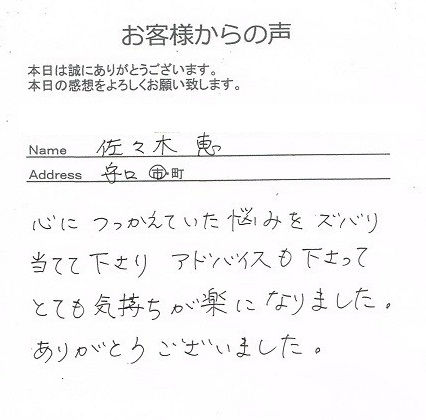 お客様からの声
本日は誠にありがとうございます。
本日の感想をよろしくお願い致します。
Name 佐々木 恵
Address 守口 市・町
心に つっかえていた 悩みを ズバリ
当てて下さり アドバイスも下さって
とても気持ちが楽になりました。
ありがとうございました。